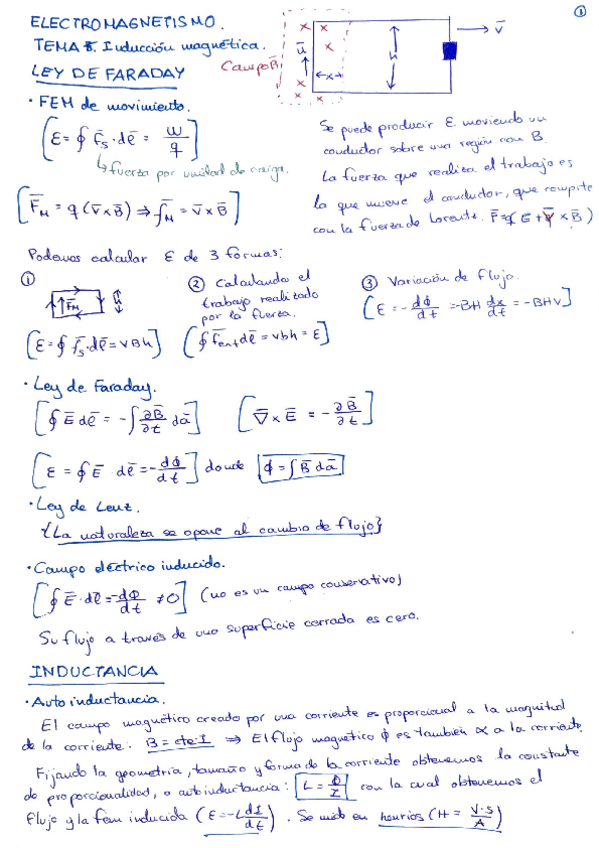 ELECTROMAGNETISMO.
①
TEMA 5. Inducción magnética.
LEY DE FARADAY
Campo B̄
x x
x x
x x
x x
ū
x
h
v̄
· FEM de movimiento.
[ε = ∮ f̄s · dl̄ = W/q]
↳ fuerza por unidad de carga.
[F̄M = q (v̄ x B̄) ⇒ f̄M = v̄ x B̄]
Se puede producir ε moviendo un
conductor sobre una región con B.
La fuerza que realiza el trabajo es
la que mueve el conductor, que compite
con la fuerza de Lorentz. F̄ = q( Ē + v̄ x B̄ )
Podemos calcular ε de 3 formas:
①
F̄M h
[ε = ∮ f̄s · dl̄ = vBh]
② Calculando el
trabajo realizado
por la fuerza.
(∮ f̄ext dl̄ = vbh = ε]
③ Variación de flujo.
(ε = - dϕ/dt = -BH dx/dt = -BHv]
· Ley de Faraday.
[∮ Ē dl̄ = - ∫ ∂B̄/∂t dā] [∇̄ x Ē = - ∂B̄/∂t]
[ε = ∮ Ē · dl̄ = - dϕ/dt] donde ϕ = ∫ B̄ dā
· Ley de Lenz.
{La naturaleza se opone al cambio de flujo}
· Campo eléctrico inducido.
[∮ Ē · dl̄ = - dϕ/dt ≠ 0] (no es un campo conservativo)
Su flujo a través de una superficie cerrada es cero.
INDUCTANCIA
· Autoinductancia.
El campo magnético creado por una corriente es proporcional a la magnitud
de la corriente: B = cte·I ⇒ El flujo magnético ϕ es también ∝ a la corriente.
Fijando la geometría, tamaño y forma de la corriente obtenemos la constante
de proporcionalidad, o autoinductancia: L = ϕ/I con la cual obtenemos el
flujo y la fem inducida (ε = -L dI/dt). Se mide en henrios (H = V·s/A)